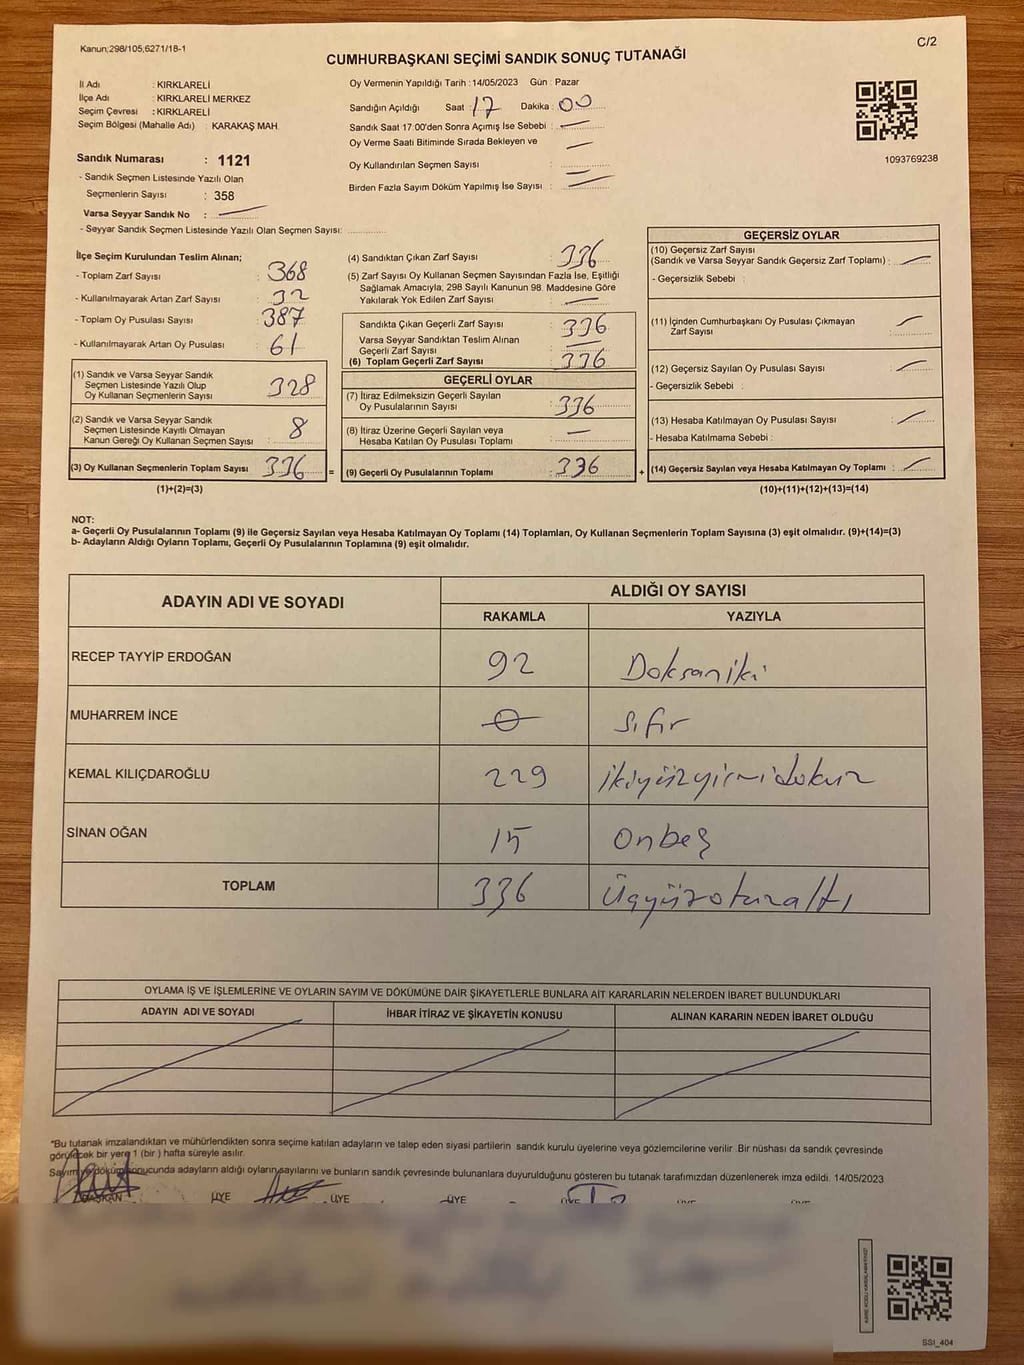 Kanun;298/105;6271/18-1
C/2
CUMHURBAŞKANI SEÇİMİ SANDIK SONUÇ TUTANAĞI
İl Adı : KIRKLARELİ
İlçe Adı : KIRKLARELİ MERKEZ
Seçim Çevresi : KIRKLARELİ
Seçim Bölgesi (Mahalle Adı) : KARAKAŞ MAH.
Sandık Numarası : 1121
- Sandık Seçmen Listesinde Yazılı Olan
Seçmenlerin Sayısı : 358
Varsa Seyyar Sandık No :
- Seyyar Sandık Seçmen Listesinde Yazılı Olan Seçmen Sayısı:
Oy Vermenin Yapıldığı Tarih : 14/05/2023 Gün : Pazar
Sandığın Açıldığı Saat : 17 Dakika : 00
Sandık Saat 17:00'den Sonra Açımış İse Sebebi :
Oy Verme Saati Bitiminde Sırada Bekleyen ve
Oy Kullandırılan Seçmen Sayısı :
Birden Fazla Sayım Döküm Yapılmış İse Sayısı :
1093769238
İlçe Seçim Kurulundan Teslim Alınan;
- Toplam Zarf Sayısı : 368
- Kullanılmayarak Artan Zarf Sayısı : 32
- Toplam Oy Pusulası Sayısı : 387
- Kullanılmayarak Artan Oy Pusulası : 61
(1) Sandık ve Varsa Seyyar Sandık
Seçmen Listesinde Yazılı Olup
Oy Kullanan Seçmenlerin Sayısı : 328
(2) Sandık ve Varsa Seyyar Sandık
Seçmen Listesinde Kayıtlı Olmayan
Kanun Gereği Oy Kullanan Seçmen Sayısı : 8
(3) Oy Kullanan Seçmenlerin Toplam Sayısı : 336 =
(1)+(2)=(3)
(4) Sandıktan Çıkan Zarf Sayısı : 336
(5) Zarf Sayısı Oy Kullanan Seçmen Sayısından Fazla İse, Eşitliği
Sağlamak Amacıyla; 298 Sayılı Kanunun 98. Maddesine Göre
Yakılarak Yok Edilen Zarf Sayısı :
Sandıkta Çıkan Geçerli Zarf Sayısı : 336
Varsa Seyyar Sandıktan Teslim Alınan
Geçerli Zarf Sayısı :
(6) Toplam Geçerli Zarf Sayısı : 336
GEÇERLİ OYLAR
(7) İtiraz Edilmeksizin Geçerli Sayılan
Oy Pusulalarının Sayısı : 336
(8) İtiraz Üzerine Geçerli Sayılan veya
Hesaba Katılan Oy Pusulası Toplamı :
(9) Geçerli Oy Pusulalarının Toplamı : 336 +
GEÇERSİZ OYLAR
(10) Geçersiz Zarf Sayısı
(Sandık ve Varsa Seyyar Sandık Geçersiz Zarf Toplamı) :
- Geçersizlik Sebebi :
(11) İçinden Cumhurbaşkanı Oy Pusulası Çıkmayan
Zarf Sayısı :
(12) Geçersiz Sayılan Oy Pusulası Sayısı :
- Geçersizlik Sebebi :
(13) Hesaba Katılmayan Oy Pusulası Sayısı :
- Hesaba Katılmama Sebebi :
(14) Geçersiz Sayılan veya Hesaba Katılmayan Oy Toplamı :
(10)+(11)+(12)+(13)=(14)
NOT:
a- Geçerli Oy Pusulalarının Toplamı (9) ile Geçersiz Sayılan veya Hesaba Katılmayan Oy Toplamı (14) Toplamları, Oy Kullanan Seçmenlerin Toplam Sayısına (3) eşit olmalıdır. (9)+(14)=(3)
b- Adayların Aldığı Oyların Toplamı, Geçerli Oy Pusulalarının Toplamına (9) eşit olmalıdır.
ADAYIN ADI VE SOYADI
ALDIĞI OY SAYISI
RAKAMLA YAZIYLA
RECEP TAYYİP ERDOĞAN 92 Doksaniki
MUHARREM İNCE 0 Sıfır
KEMAL KILIÇDAROĞLU 229 ikiyüzyirmidokuz
SİNAN OĞAN 15 onbeş
TOPLAM 336 Üçyüzotuzaltı
OYLAMA İŞ VE İŞLEMLERİNE VE OYLARIN SAYIM VE DÖKÜMÜNE DAİR ŞİKAYETLERLE BUNLARA AİT KARARLARIN NELERDEN İBARET BULUNDUKLARI
ADAYIN ADI VE SOYADI İHBAR İTİRAZ VE ŞİKAYETİN KONUSU ALINAN KARARIN NEDEN İBARET OLDUĞU
*Bu tutanak imzalandıktan ve mühürlendikten sonra seçime katılan adayların ve talep eden siyasi partilerin sandık kurulu üyelerine veya gözlemcilerine verilir .Bir nüshası da sandık çevresinde
görülecek bir yere 1 (bir ) hafta süreyle asılır.
Sayım ve döküm sonucunda adayların aldığı oyların sayılarını ve bunların sandık çevresinde bulunanlara duyurulduğunu gösteren bu tutanak tarafımızdan düzenlenerek imza edildi. 14/05/2023
BAŞKAN ÜYE ÜYE ÜYE ÜYE ÜYE ÜYE
SSI_404